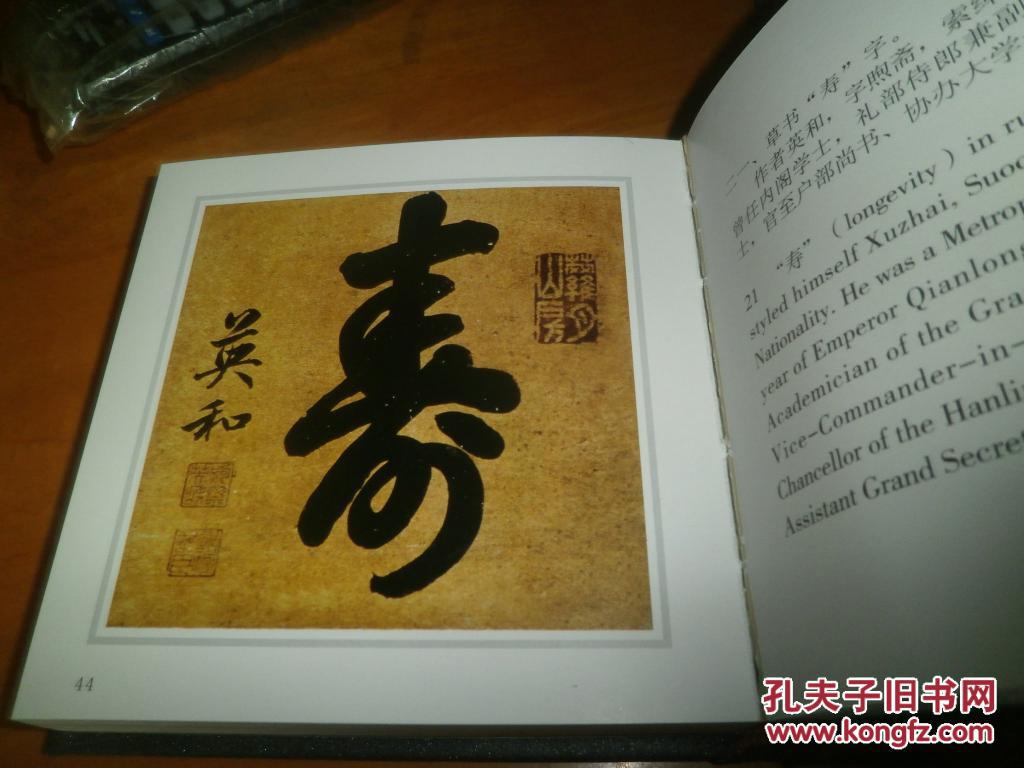 寿
英和
44
二一、草书“寿”字。
作者英和，字煦斋，索绰
曾任内阁学士，礼部侍郎兼副
士，官至户部尚书、协办大学
21 “寿” (longevity) in ru
styled himself Xuzhai, Suoc
Nationality. He was a Metrop
year of Emperor Qianlong
Academician of the Gra
Vice-Commander-in-
Chancellor of the Hanli
Assistant Grand Secret
孔夫子旧书网
www.kongfz.com